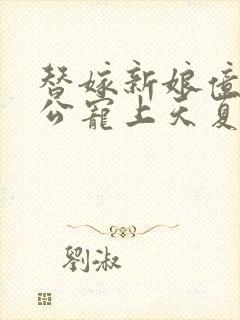 替嫁新娘億
公寵上天夏
劉淑